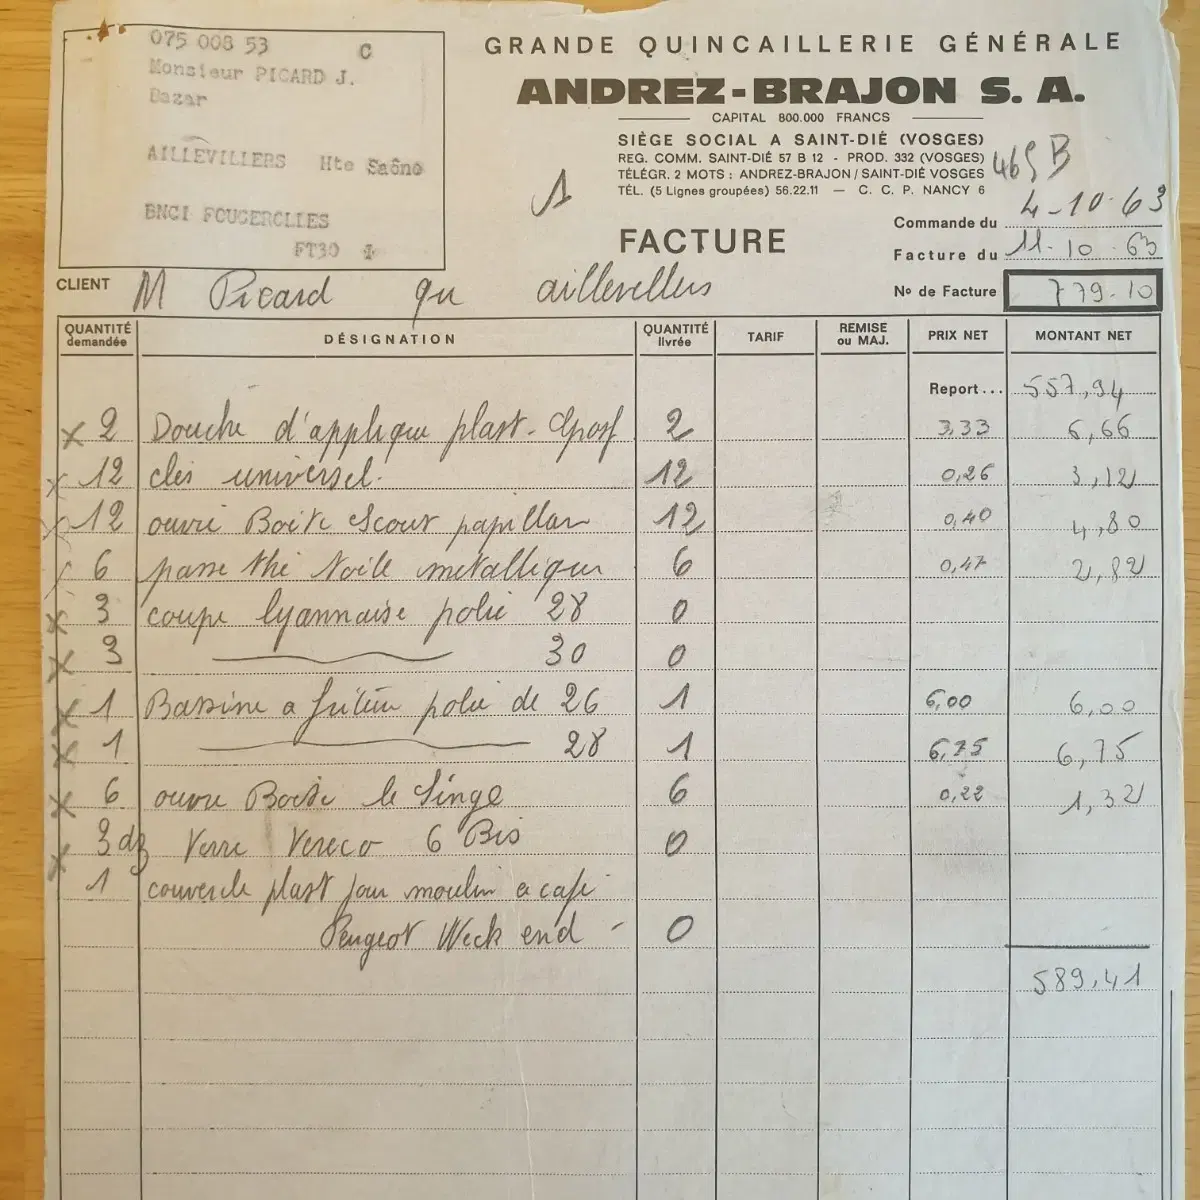 075 008 53 C
Monsieur PICARD J.
Bazar
AILLEVILLERS Hte Saône
BNCI FOUGEROLLES
FT30
GRANDE QUINCAILLERIE GÉNÉRALE
ANDREZ-BRAJON S. A.
CAPITAL 800.000 FRANCS
SIÈGE SOCIAL A SAINT-DIÉ (VOSGES)
REG. COMM. SAINT-DIÉ 57 B 12 - PROD. 332 (VOSGES)
TÉLÉGR. 2 MOTS : ANDREZ-BRAJON / SAINT-DIÉ VOSGES
TÉL. (5 Lignes groupées) 56.22.11 — C. C. P. NANCY 6
FACTURE
Commande du 4-10-63
Facture du 11-10-63
N° de Facture 779-10
CLIENT M Picard aillevillers
QUANTITÉ demandée DÉSIGNATION QUANTITÉ livrée TARIF REMISE ou MAJ. PRIX NET MONTANT NET
Report... 557,94
x 2 Douche d'applique plast- 2 3,33 6,66
x 12 clés universel. 12 0,26 3,12
x 12 ouvre Boite Scout papillon 12 0,40 4,80
x 6 passe thé toile metallique 6 0,47 2,82
x 3 coupe lyonnaise polie 28 0
x 3 30 0
x 1 Bassine a friture polie de 26 1 6,00 6,00
x 1 28 1 6,75 6,75
x 6 ouvre Boite le Singe 6 0,22 1,32
x 3 dz Verre Vereco 6 Bis 0
1 couvercle plast pour moulin a café
Peugeot Week end - 0
589,41